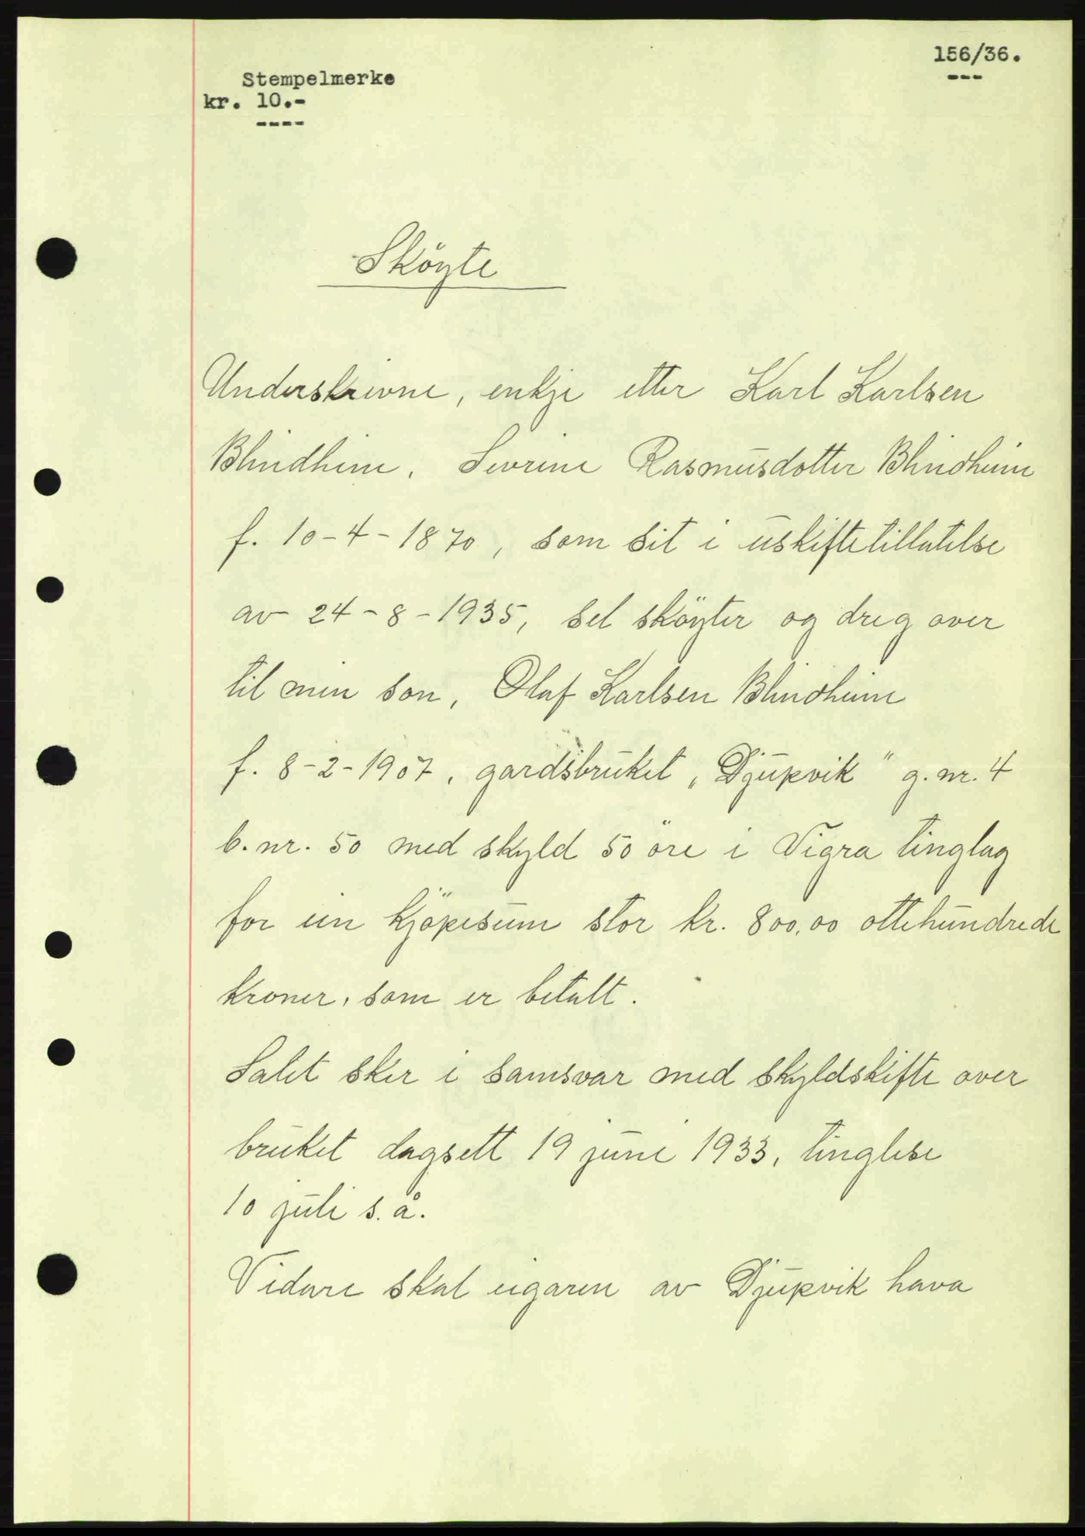 156/36.
Stempelmerke
kr. 10.-
Sköyte
Underskrivne, enkje etter Karl Karlsen
Blindheim, Sevrine Rasmusdotter Blindheim
f. 10-4-1870, som sit i uskiftetillatelse
av 24-8-1935, sel sköyter og dreg over
til min son, Olaf Karlsen Blindheim
f. 8-2-1907, gardsbruket „Djupvik" g.nr. 4
b.nr. 50 med skyld 50 öre i Vigra tinglag
for ein kjöpesum stor kr. 800,00 ottehundrede
kroner, som er betalt.
Salet sker i samsvar med skyldskifte over
bruket dagsett 19 juni 1933, tinglese
10 juli s.å.
Vidare skal eigaren av Djupvik hava